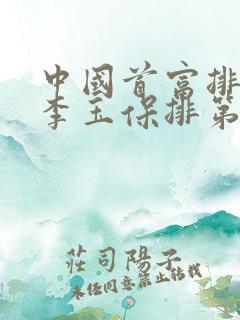 中國首富排
李玉保排第
莊司陽子
未經同意禁止轉載